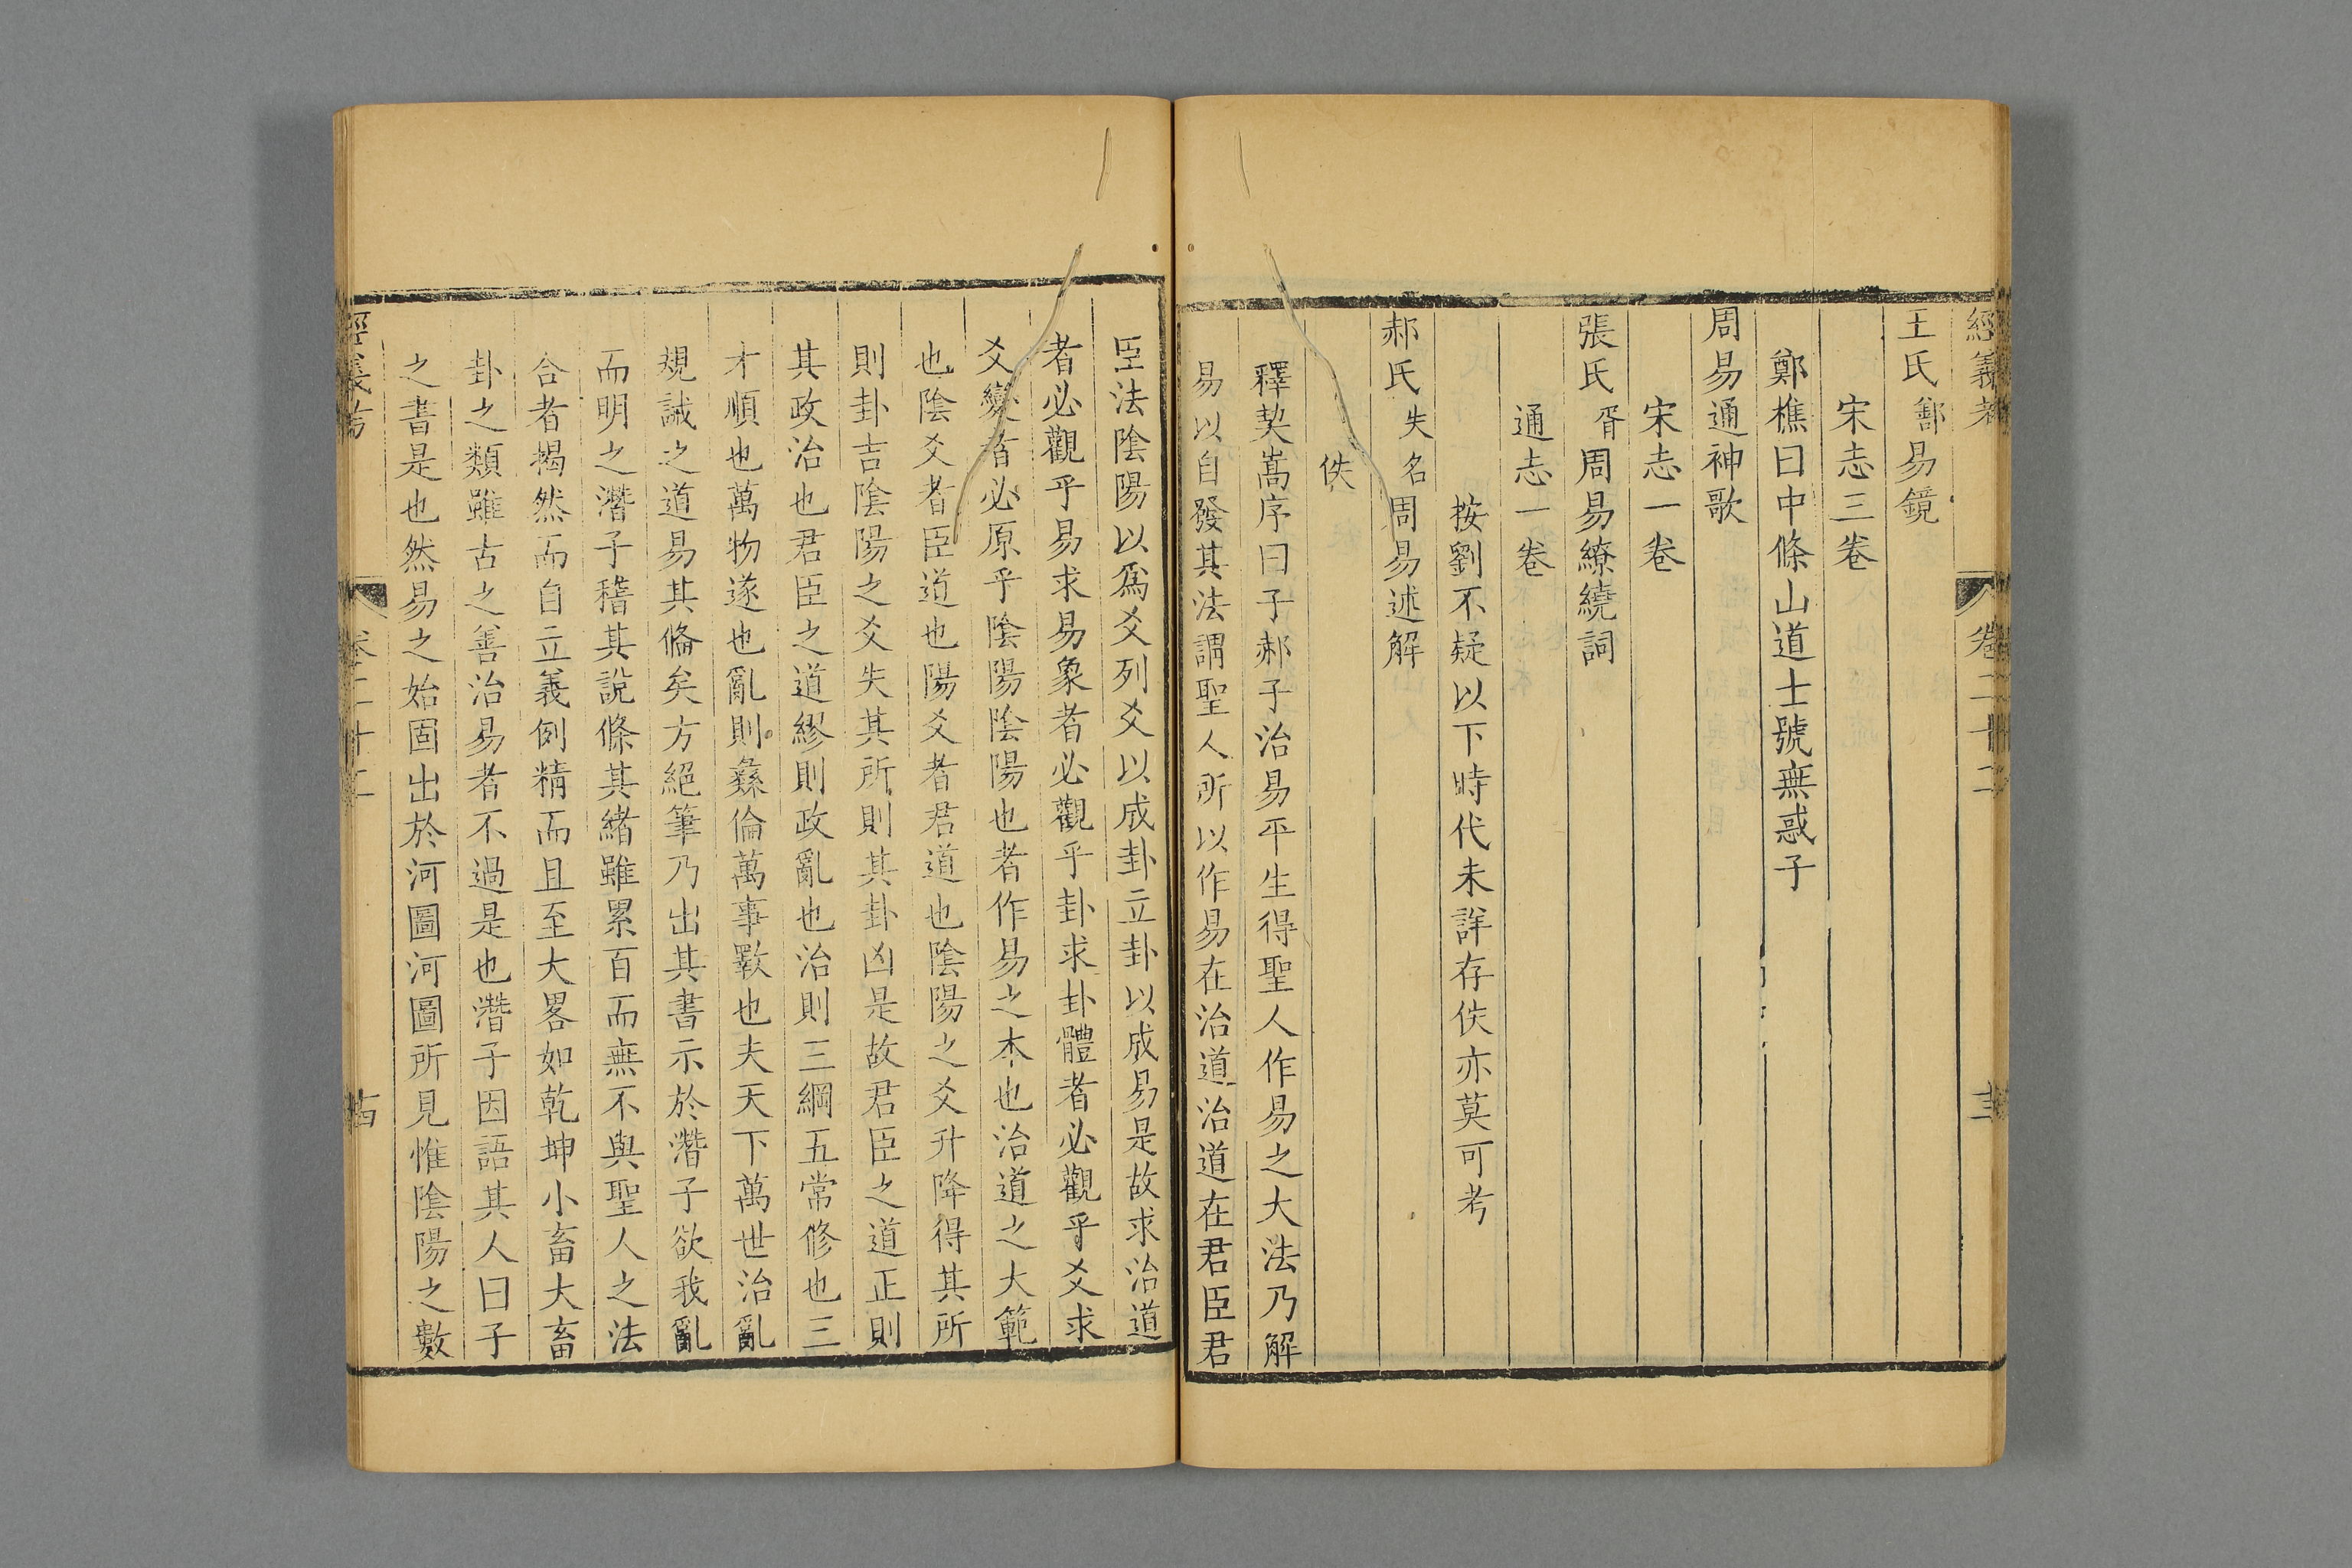 經義考 卷二十二 十三
王氏鄯易鏡
宋志三卷
鄭樵曰中條山道士號無惑子
周易通神歌
宋志一卷
張氏胥周易繚繞詞
通志一卷
按劉不疑以下時代未詳存佚亦莫可考
郝氏失名周易述解
佚
釋契嵩序曰子郝子治易平生得聖人作易之大法乃解
易以自發其法謂聖人所以作易在治道治道在君臣君
臣法陰陽以爲爻列爻以成卦立卦以成易是故求治道
者必觀乎易求易象者必觀乎卦求卦體者必觀乎爻求
爻變者必原乎陰陽陰陽也者作易之本也治道之大範
也陰爻者臣道也陽爻者君道也陰陽之爻升降得其所
則卦吉陰陽之爻失其所則其卦凶是故君臣之道正則
其政治也君臣之道繆則政亂也治則三綱五常修也三
才順也萬物遂也亂則彝倫萬事斁也夫天下萬世治亂
規誡之道易其備矣方絕筆乃出其書示於潛子欲我亂
而明之潛子稽其說條其緒雖累百而無不與聖人之法
合者揭然而自立義例精而且至大畧如乾坤小畜大畜
卦之類雖古之善治易者不過是也潛子因語其人曰子
之書是也然易之始固出於河圖河圖所見惟陰陽之數
經義考 卷二十二 十四